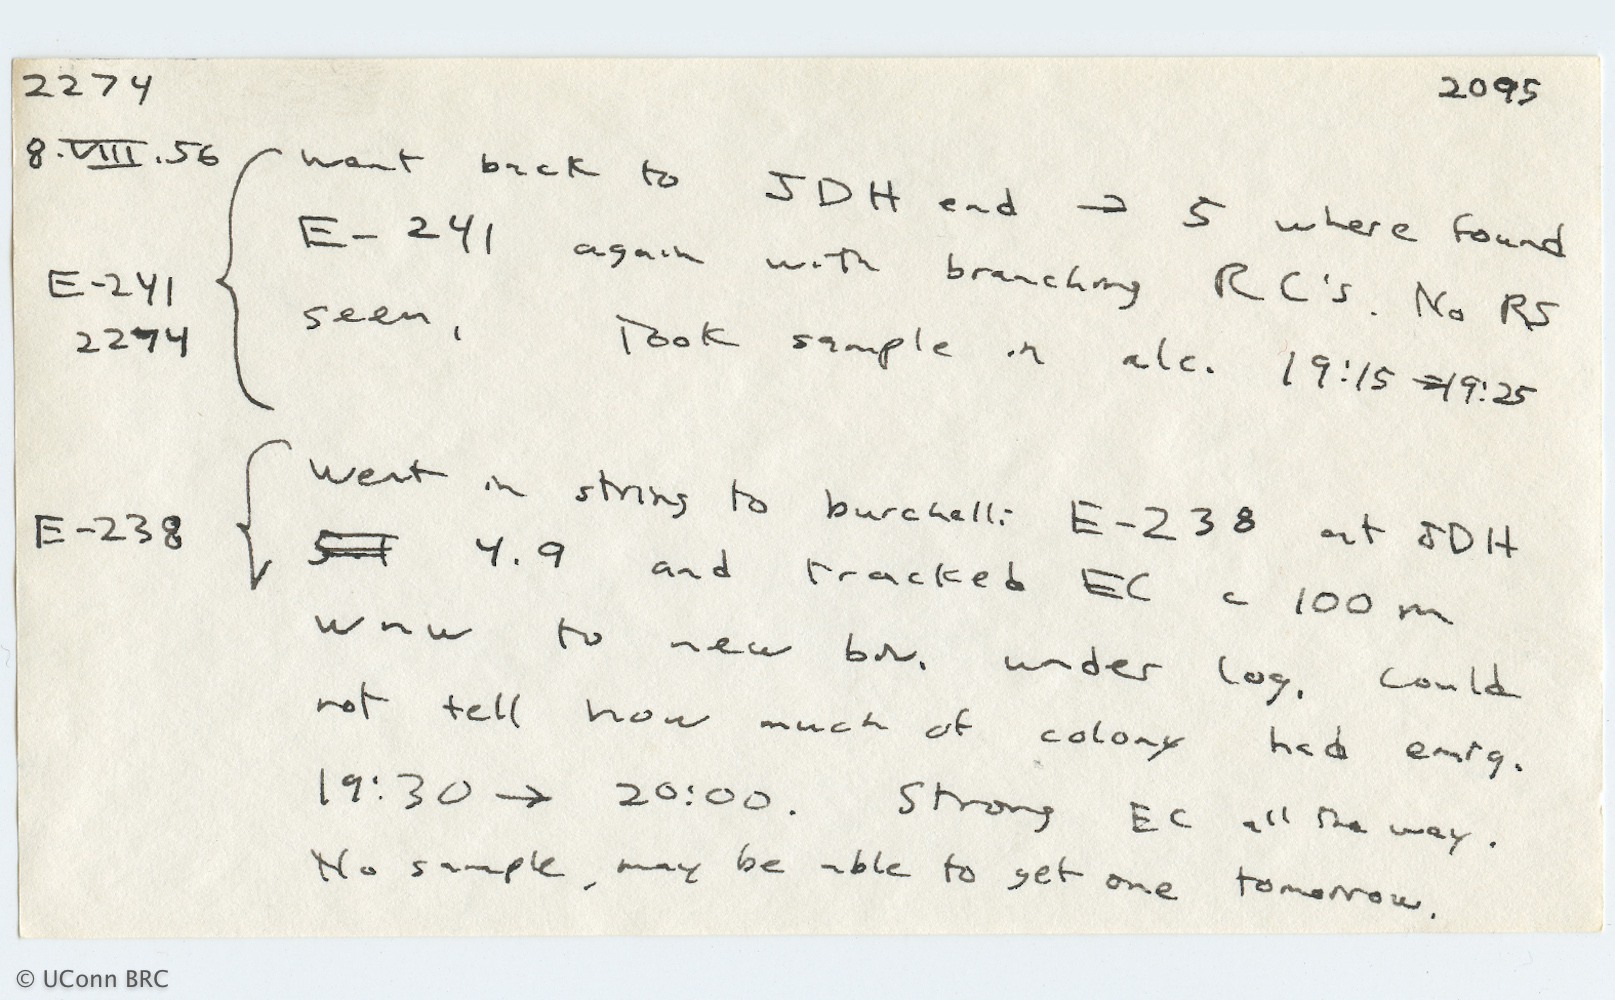 2274 2095
8.VIII.56 went back to JDH end → 5 where found
E-241 again with branching RC's. No RS
E-241
2274
seen. Took sample in alc. 19:15 → 19:25
went in string to burchelli E-238 at JDH
E-238
4.9 and tracked EC c 100 m
WNW to new biv. under log. Could
not tell how much of colony had emig.
19:30 → 20:00. Strong EC all the way.
No sample, may be able to get one tomorrow.
© UConn BRC